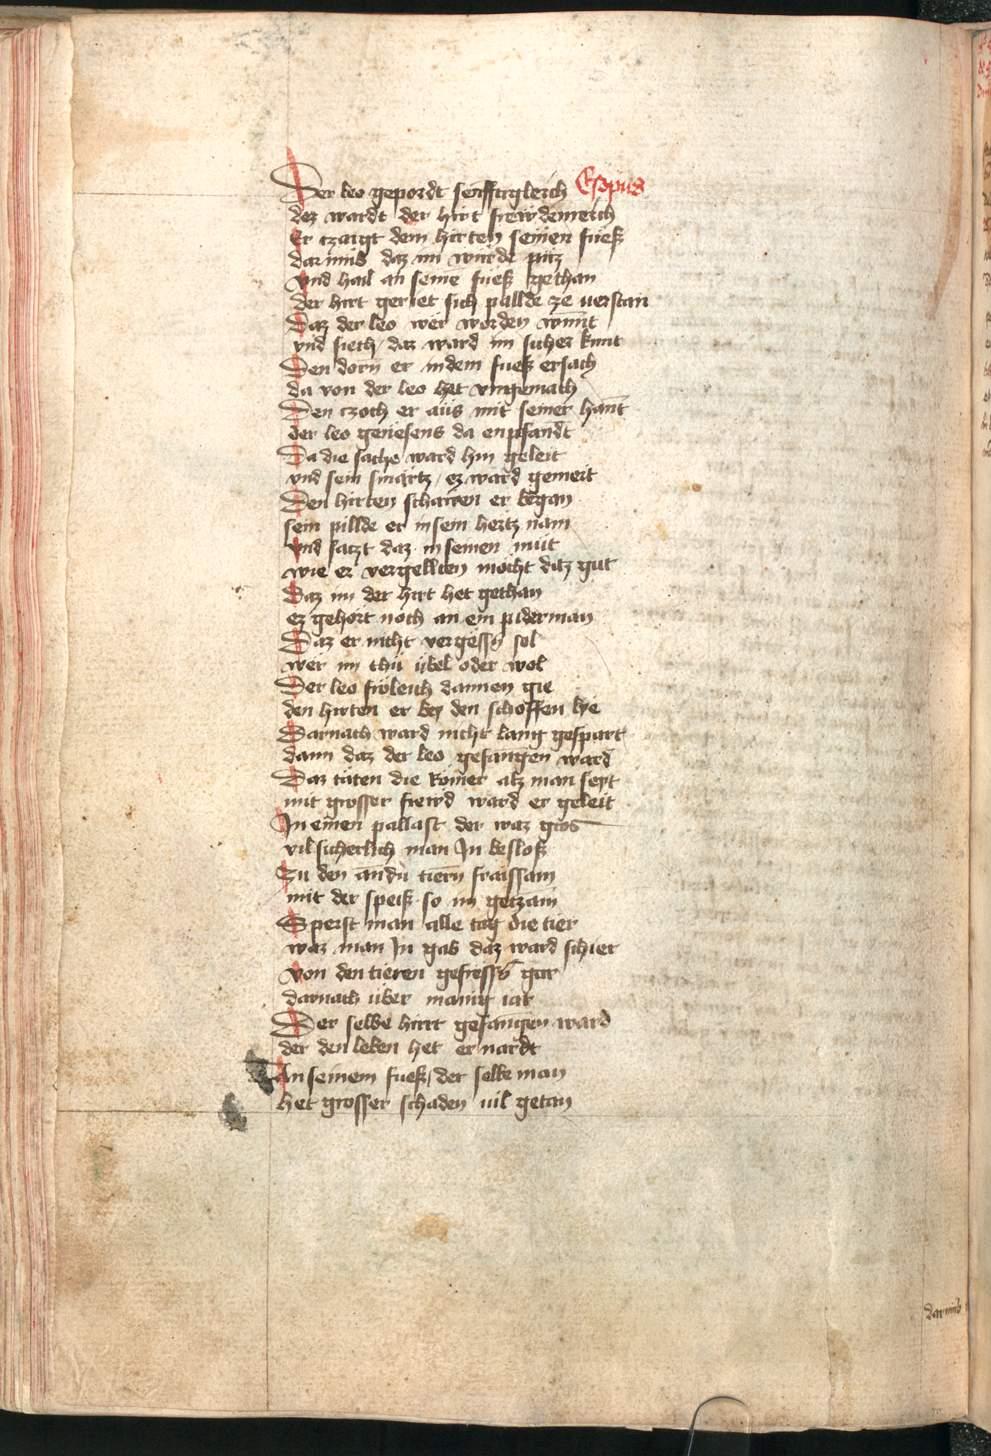 Der leo gepordt senfftigleich Esopus
dez wardt der hirt frewdenreich
Er czaigt dem hirten seinen fueß
dar umb daz im wurde puz
vnd hail an seinē fueß gethan
der hirt geriet sich pallde ze uerstan
Daz der leo wer worden wunt
vnd siech daz ward im sicher kunt
Den dorn er in dem fueß ersach
da von der leo het vngemach
Den czoch er aus mit seiner hant
der leo geniesens da enpfandt
Da die sache ward hin geleit
vnd sein smartz ez ward gemeit
Den hirten schawen er began
sein pillde er in sein hertz nam
vnd saczt daz in seinen mut
wie er vergellten mocht daz gut
Daz im der hirt het gethan
ez gehort noch an ein piderman
Daz er nicht vergessn sol
wer im thu übel oder wol
Der leo frölich dannen gie
den hirten er bey den schoffen lye
Darnach ward nicht lang gespart
dann daz der leo gefangen ward
Daz täten die Römer alz man seyt
mit grosser frewd ward er geleit
In einen pallast der waz gros
vil sicherlich man In besloß
Zu den andn tiern fraissam
mit der speiß so im gezam
Sperst man alle tag die tier
waz man In gab daz ward schier
von den tieren gefressn gar
darnach über manig iar
Der selbe hirrt gefangen ward
der den leben het ernardt
An seinem fueß der selbe man
het grosser schaden vil getan
dar umb